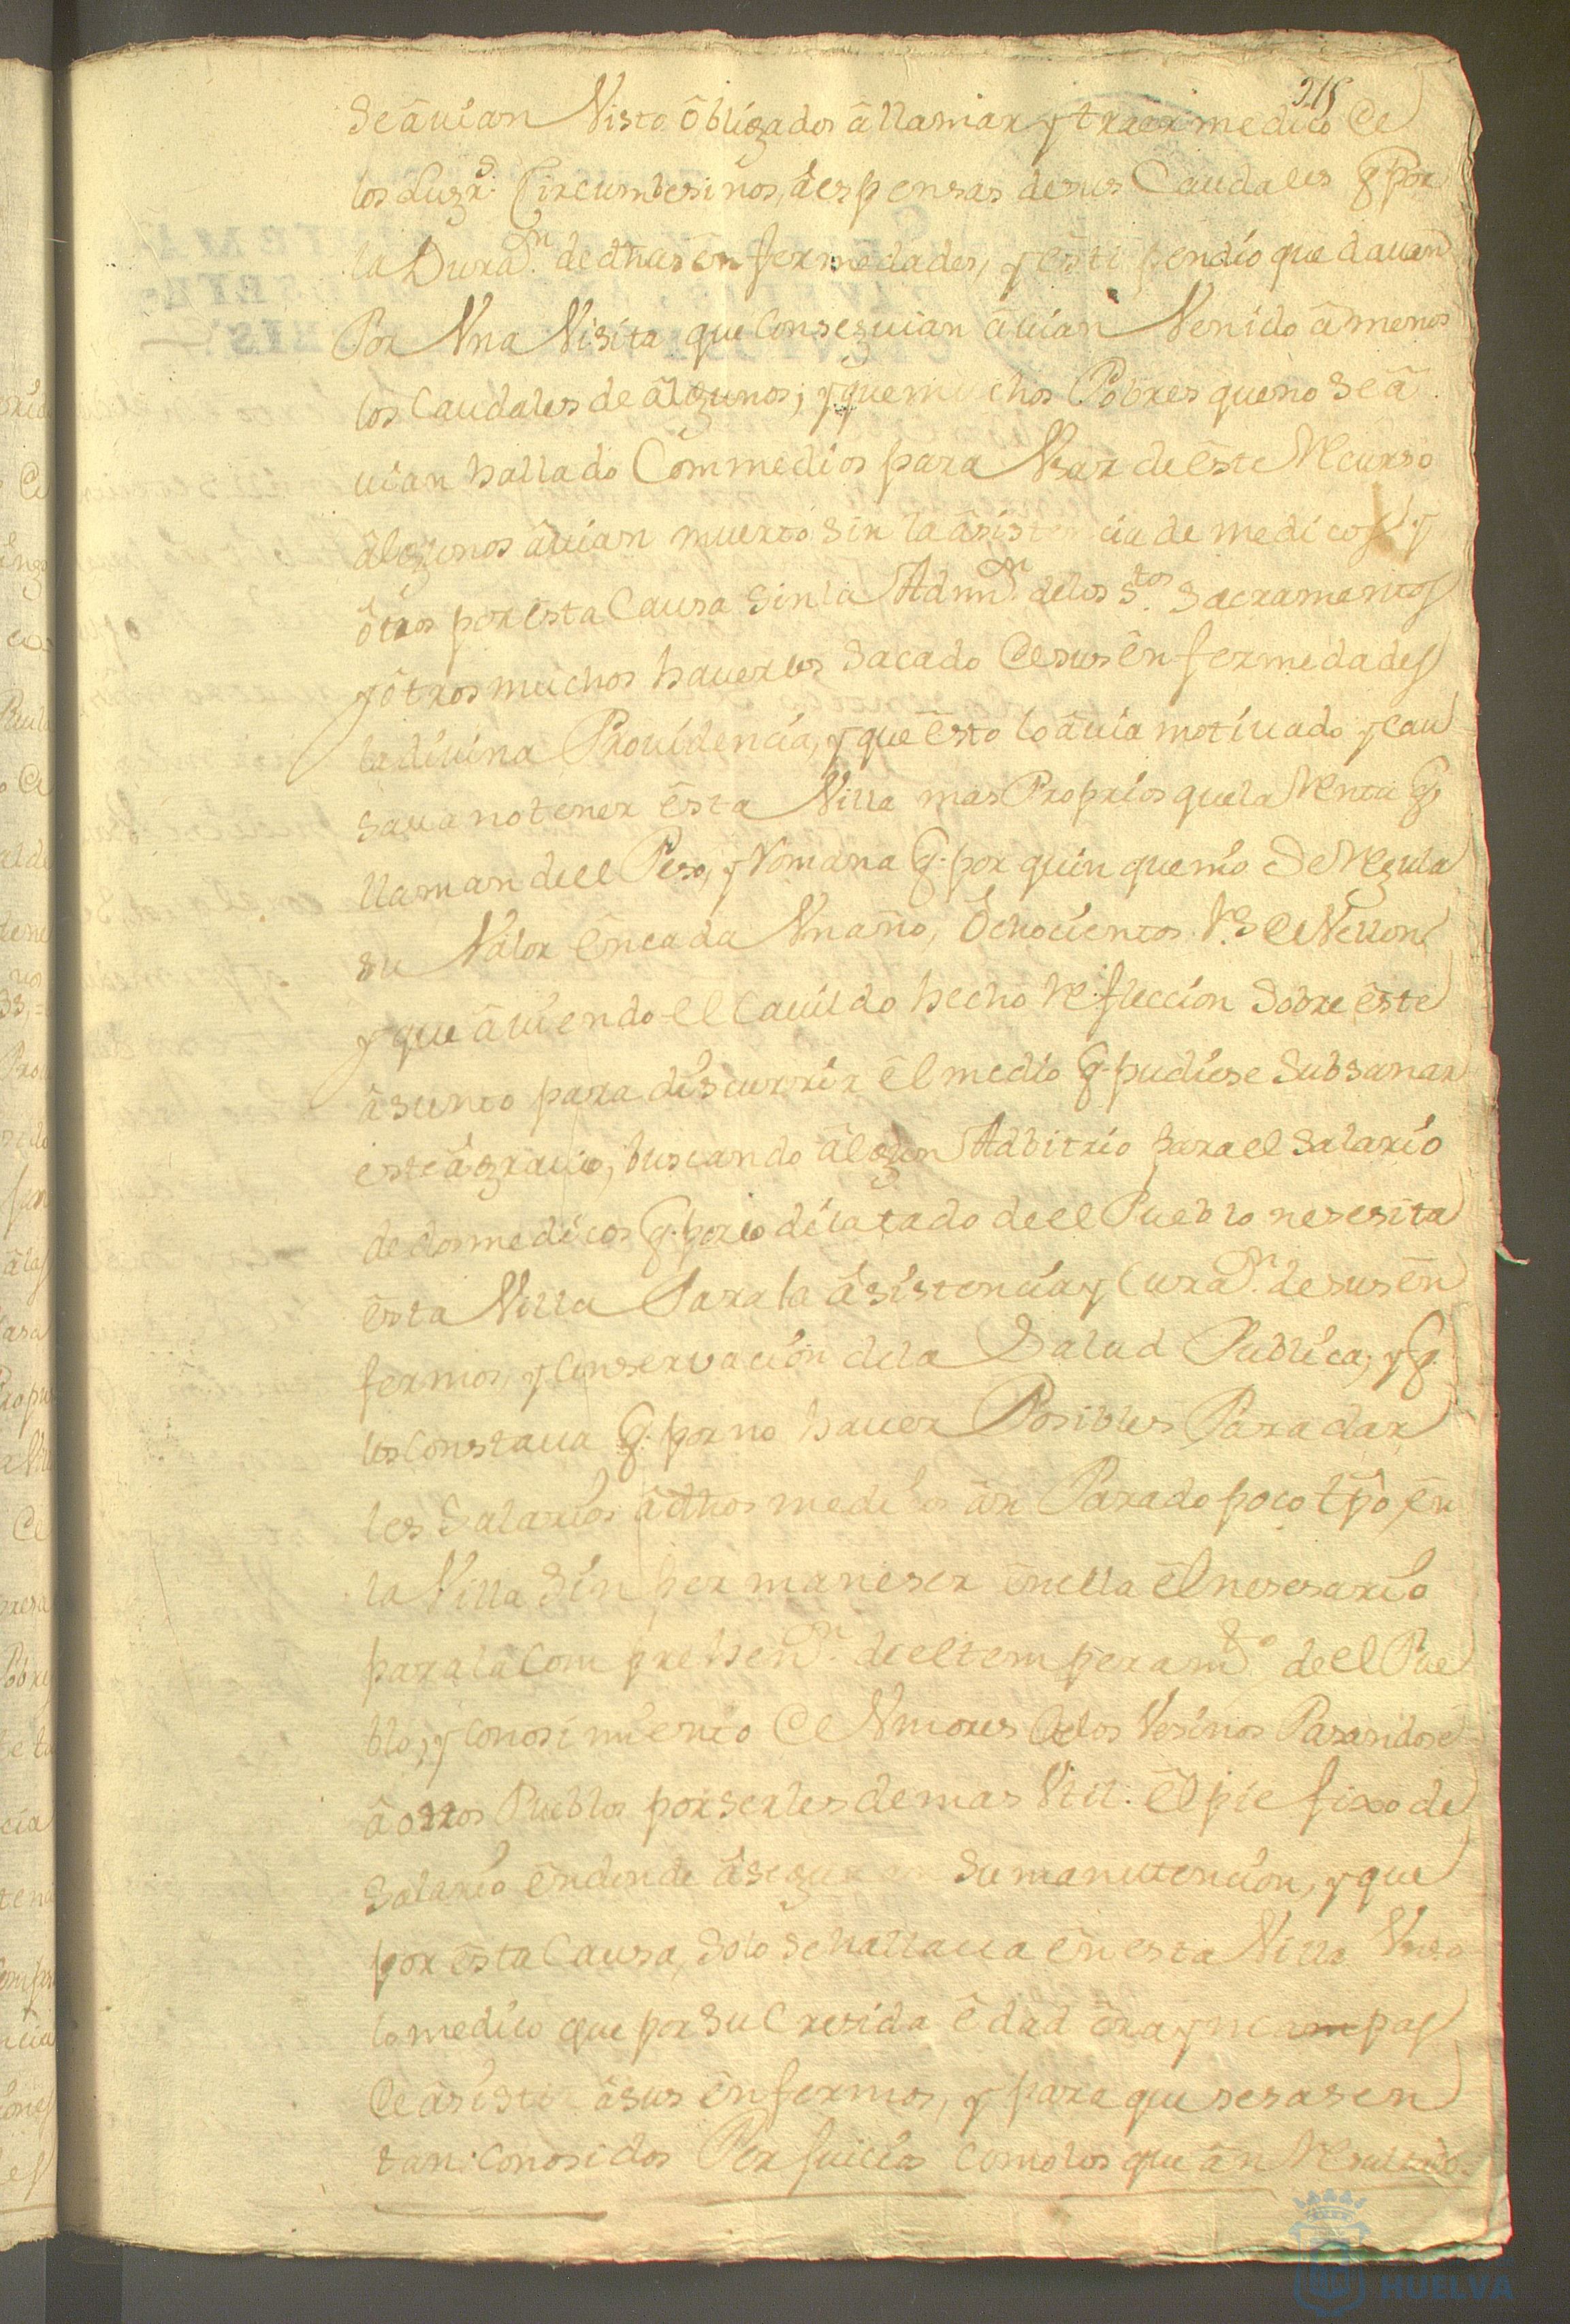 215
se âuian Visto ôbligados â llamar y traer medico de
los Lug.s Circumbesinos, â espensas de sus Caudales q por
la Dura.n de dhas ênfermedades, y êstipendio que dauan
Por Vna Visita que Conseguian âuian Venido â menos
los Caudales de âlgunos; y que muchos Pobres que no se â
uian hallado Com medios para Vsar de êste Recurso
âlgunos âuian muerto sin la âsistencia de medicos; y
ôtros por êsta Causa sin la Admn.on de los S.tos Sacramentos
y ôtros muchos hauerles sacado de sus ênfermedades
la diuina Prouidencia, y que êsto lo âuia motiuado y cau
saua no tener êsta Villa mas Proprios que la Renta q
llaman de el Peso, y Romana q. por quinquenio se Regula
su Valor ên cada Vn año, Ôchocientos R.s de Vellon
y que âuiendo el Cauildo hecho Refleccion sobre êste
âsumto para discurrir êl medio q. pudiese subsanar
este âgrauio, buscando âlgun Adbitrio para el salario
de dos medicos q. por lo dilatado de el Pueblo nesesita
êsta Villa Para la âsistencia y Cura.on de sus ên
fermos, y Conservacion de la Salud Publica; y q.
les Constaua q. por no hauer Posibles Para dar
les salarios â dhos medicos ân Parado poco tpo, ên
la Villa sin permaneser ên ella êl nesesario
para la Comprehen.on de el temperam.to de el Pue
blo, y Conosimiento de Vmores de los Vesinos Pasandose
â otros Pueblos por serles de mas Vtil êl pie fixo de
salario ên donde âseguran su manutencion, y que
por êsta Causa, solo se hallaua ên esta Villa Vn so
lo medico que por su Cresida êdad êra yncampas
de âsistir â sus ênfermos, y para que sesasen
tan Conosidos Perjuicios Como los que ân Resultado
HUELVA